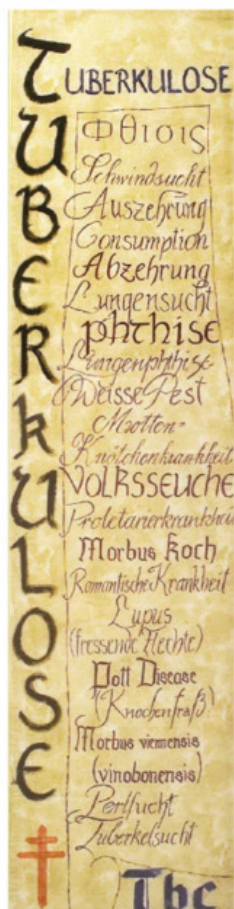 TUBERKULOSE
TUBERKULOSE
Φθισις
Schwindsucht
Auszehrung
Consumption
Abzehrung
Lungensucht
phthise
Lungenphthise
Weisse Pest
Motten-
Knötchenkrankheit
VOLKSSEUCHE
Proletarierkrankheit
Morbus Koch
Romantische Krankheit
Lupus
(fressende Flechte)
Pott Disease
(Knochenfraß)
Morbus viennensis
(vinobonensis)
Perlsucht
Tuberkelsucht
Tbc